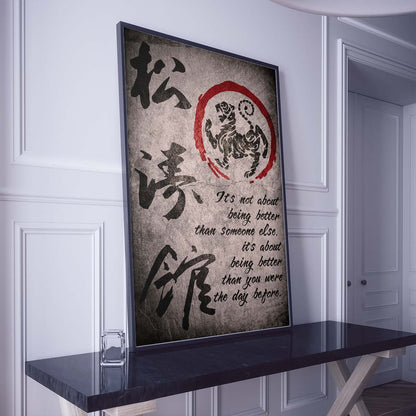 松
濤
館
It's not about
being better
than someone else.
it's about
being better
than you were
the day before.